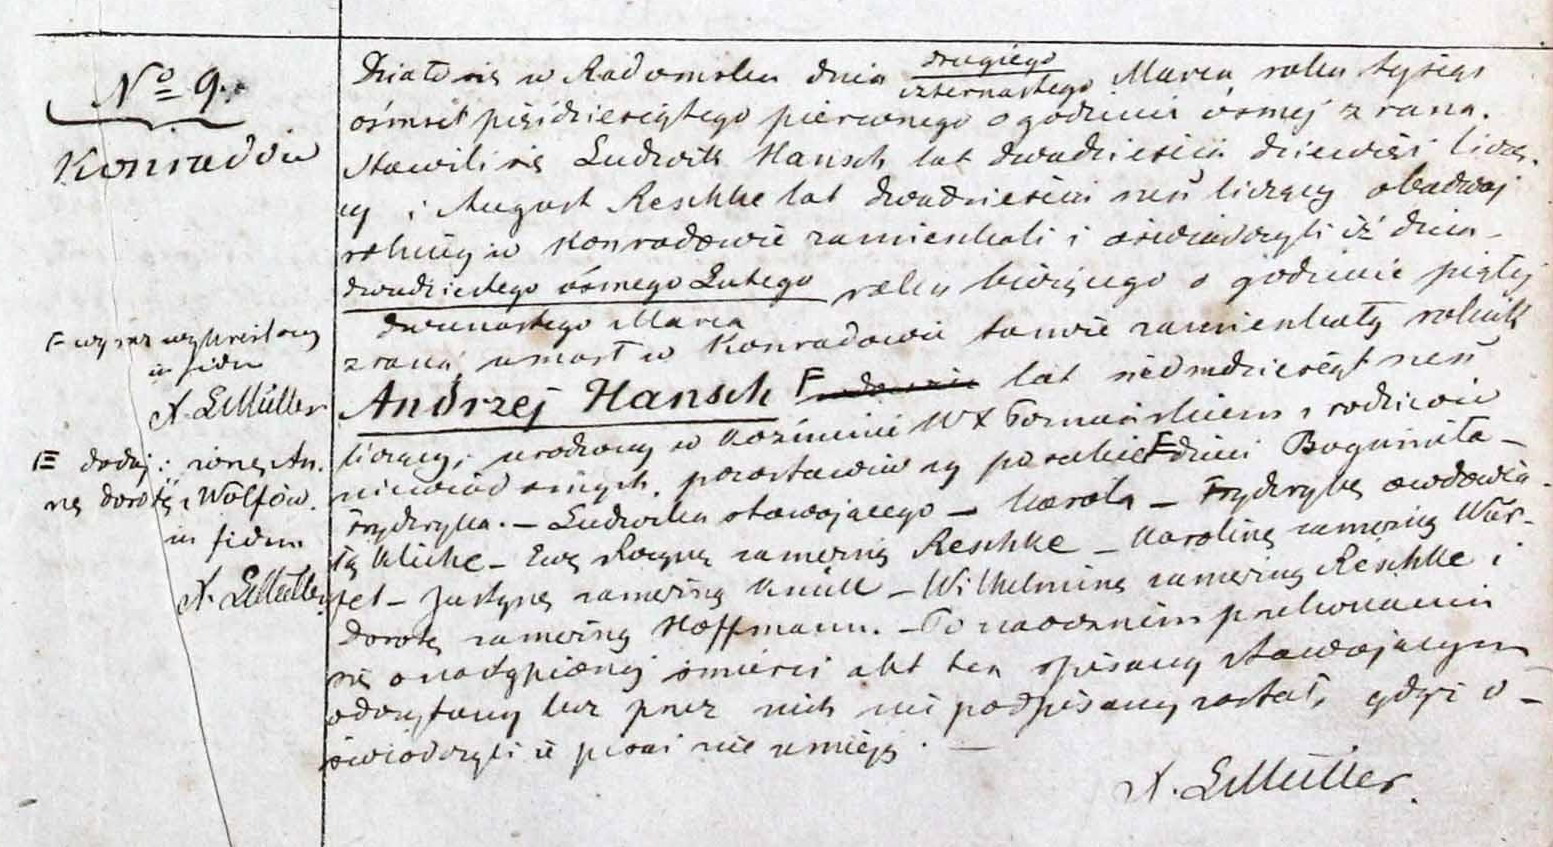 No 9.
Konradów
Działo się w Radomsku dnia drugiego
czternastego Marca roku tysiąc
ośmset pięśdziesiątego pierwszego o godzinie ósmej z rana.
Stawili się Ludwik Hansch lat dwadzieścia dziewięć liczą-
cy i August Reschke lat dwadzieścia sześ liczący obadwaj
rolnicy w Konradowie zamieszkali i oświadczyli iż dnia
dwudziestego ósmego Lutego
dwunastego Marca
roku bieżącego o godzinie piątej
z rana, umarł w Konradowie tamże zamieszkały rolnik
Andrzej Hansch lat siedmdziesiąt sześ
liczący, urodzony w Kozminie W X Poznańskiem z rodziców
niewiadomych, pozostawiwszy po sobie dzieci Bogumiła –
Frydryka. – Ludwika stawającego – Karola – Frydrykę owdowia-
łą Kliche – Ewę Rozynę zamężną Reschke – Karolinę zamężną
– Justynę zamężną – Wilhelminę zamężną Reschke i
Dorotę zamężną Hoffmann. – Po naocznem przekonaniu
się o nastąpionej śmierci akt ten spisany stawającym
odczytany lecz przez nich nie podpisany został, gdyż o-
świadczyli iż pisać nie umieją. —
X. EMüller.
F wyraz wykreślony
in fidem
X. EMüller
dodaj: żonę An-
nę Dorotę z Wolfów.
in fidem
X. EMüller